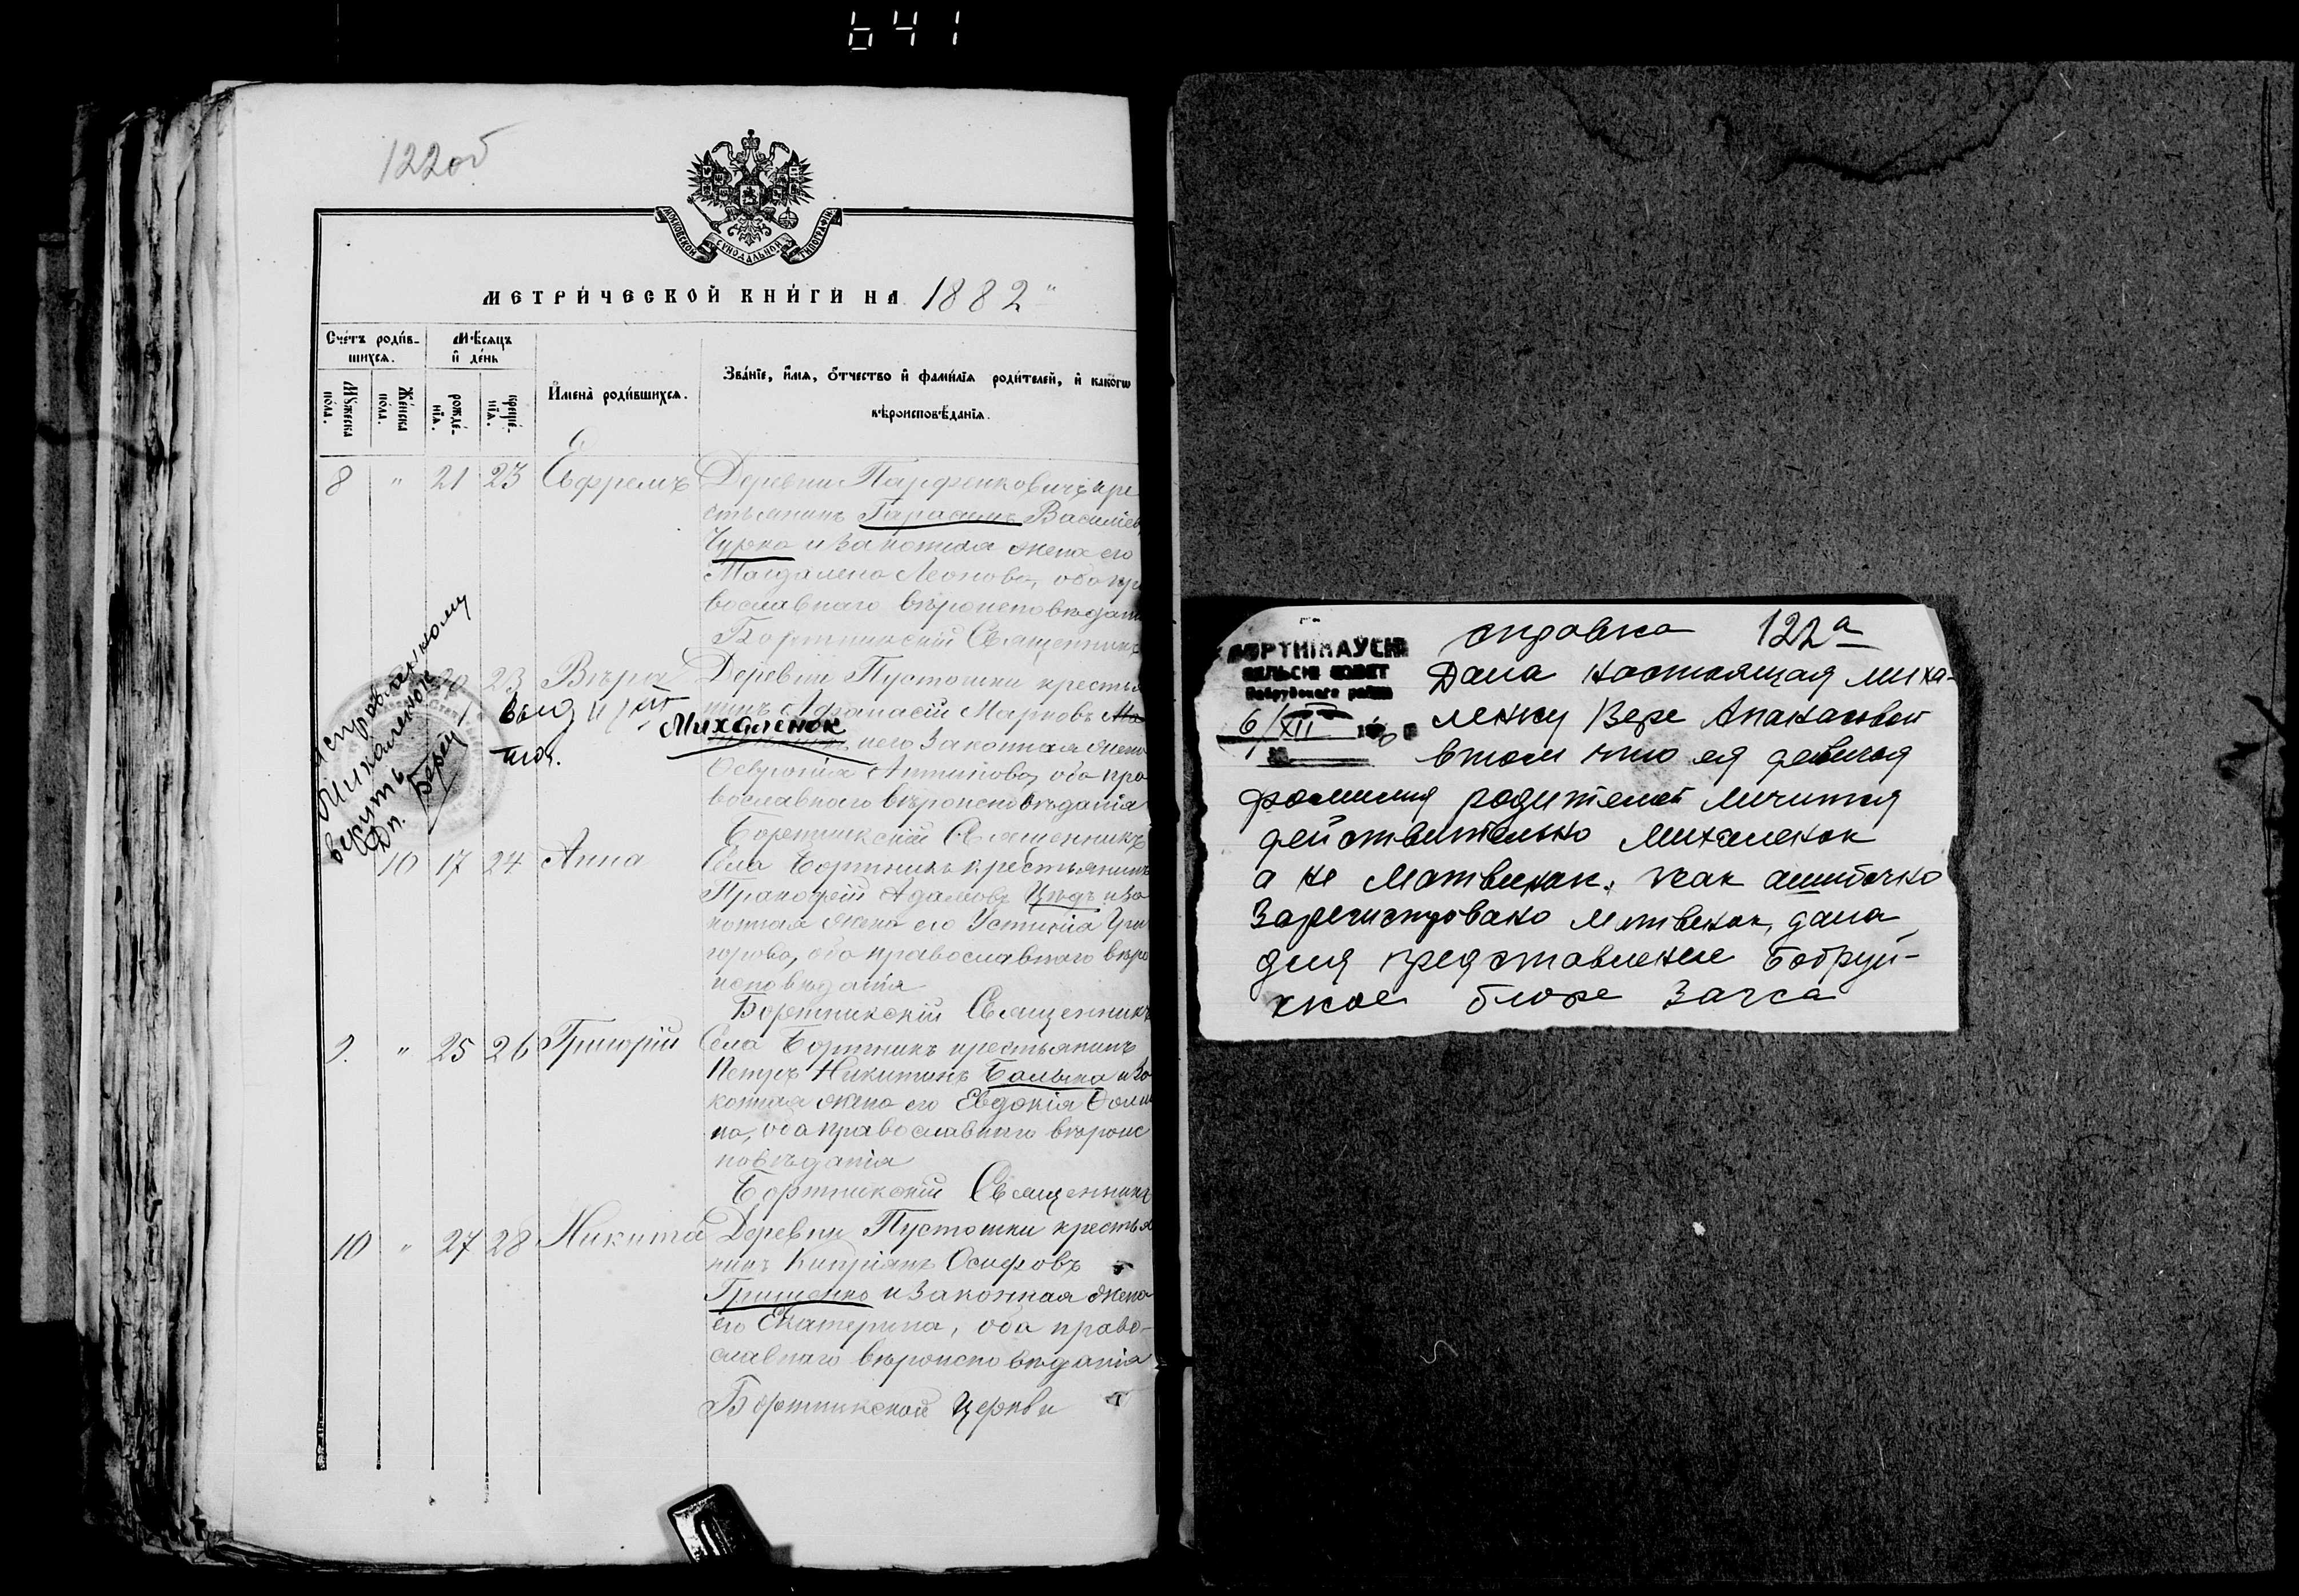 641
122об
МОСКОВСКОЙ СУНОДАЛЬНОЙ ТИПОГРАФІИ
МЕТРИ́ЧЕСКОЙ КНИ́ГИ НА 1882
Сче́тъ роди́в-
шихся.
Мѣ́сяцъ
и҆ де́нь
Мꙋ́жеска
по́ла.
Же́нска
по́ла.
рожде́-
нїѧ.
креще́-
нїѧ.
И҆мена̀ роди́вшихся.
Зва́нїе, и҆́мѧ, ѻ҆́тчество и҆ фами́лїѧ роди́телей, и҆ како́гѡ
вѣроисповѣ́данїѧ.
8 " 21 23 Ефремъ Деревни Парфенковичъ кре
стьянинъ Гарасимъ Василіев
Чурко и законная жена его
Магдалена Леонова, оба пр
вославнаго вѣроисповѣдан
Бортникскій Священникъ
20 23 Вѣра Деревни Пустошки крестья
нинъ Афанасій Марковъ Ма
Михаленок
и его законная жена
Антипова, оба пра
вославнаго вѣроисповѣданія
Бортникскій Священникъ
исправленному
Михаленок
верить
10 17 24 Анна Села Бортникъ крестьянинъ
Пракофій Адамовъ и за
конная жена его Устинія Гри
горова, оба православнаго вѣро
исповѣданія
Бортникскій Священникъ
9. " 25 26 Григорій Села Бортникъ крестьянинъ
Петръ Никитинъ и за
конная жена его Евдокія
на, оба православнаго вѣроис
повѣданія
Бортникскій Священникъ
10 " 27 28 Никита Деревни Пустошки крестья
нинъ Кипріянъ Осифовъ
Грищенко и законная жена
его Екатерина, оба право-
славнаго вѣроисповѣданія
Бортникской Церкви
справка 122а
БОРТНІКАЎСКІ
СЕЛЬСКІ СОВЕТ
Бабруйскага раёна
6/XII
Дана настоящая миха-
ленку Вере Апанасовой
втом что ея девичая
фамилия родителей личится
действительно михаленок
а не Матвиенок. как ашибочно
зарегистровано Матвенок, дана
для представление Бобруй-
ское бюре Загса